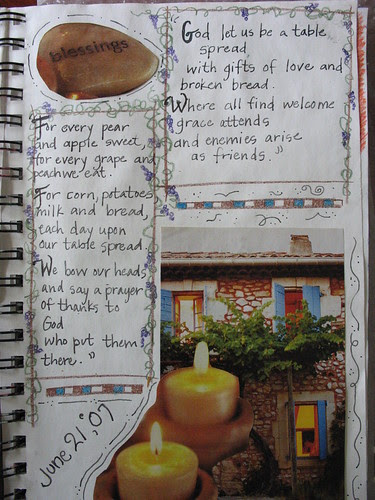 blessings
"God let us be a table
spread
with gifts of love and
broken bread.
Where all find welcome
grace attends
and enemies arise
as friends."
For every pear
and apple sweet,
for every grape and
peach we eat.
For corn, potatoes
milk and bread,
each day upon
our table spread.
We bow our heads
and say a prayer
of thanks to
God
who put them
there."
June 21, '07